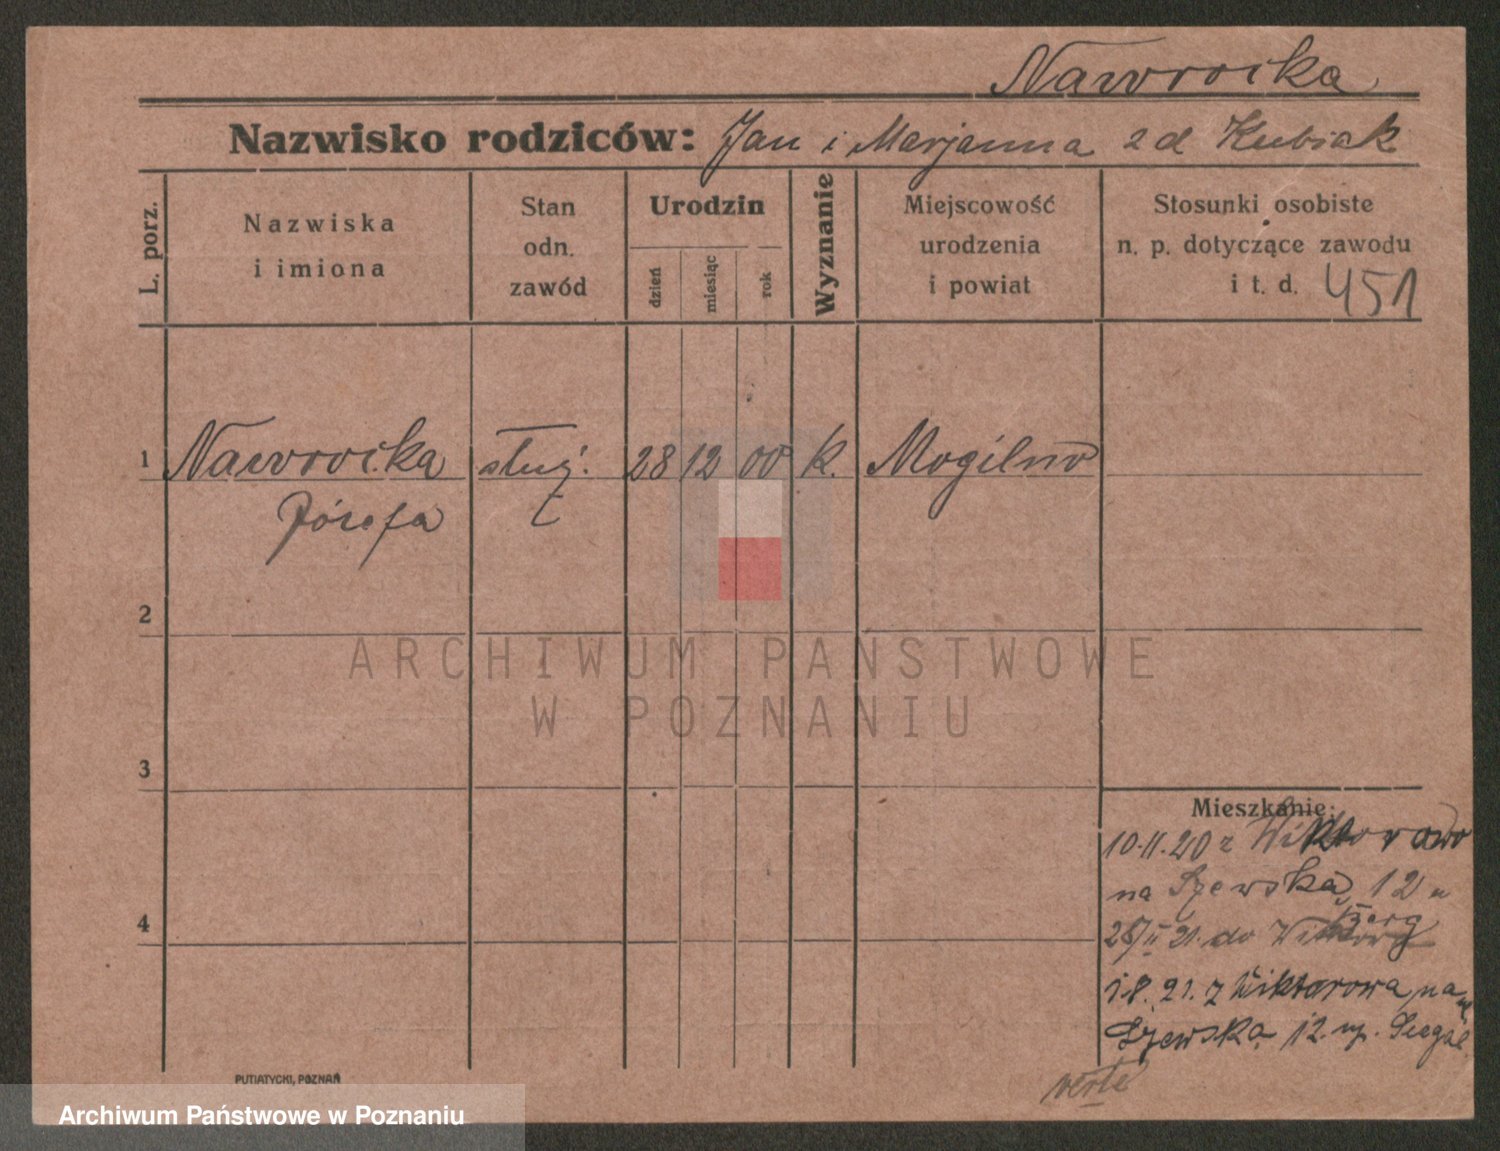 Nawrocka
Nazwisko rodziców: Jan i Marjanna z d Kubiak
L. porz.
Nazwiska
i imiona
Stan
odn.
zawód
Urodzin
dzień
miesiąc
rok
Wyznanie
Miejscowość
urodzenia
i powiat
Stosunki osobiste
n. p. dotyczące zawodu
i t. d. 451
1 Nawrocka służ. 28 12 00 k. Mogilno
Józefa
2
ARCHIWUM PAŃSTWOWE
W POZNANIU
3
Mieszkanie:
10.11.20 z Wiktorowo
na Szewska 12 u
Berg
28/II 21. do
1.8.21. z Wiktorowa na
Szewska 12.
4
verte
PUTIATYCKI, POZNAŃ
Archiwum Państwowe w Poznaniu